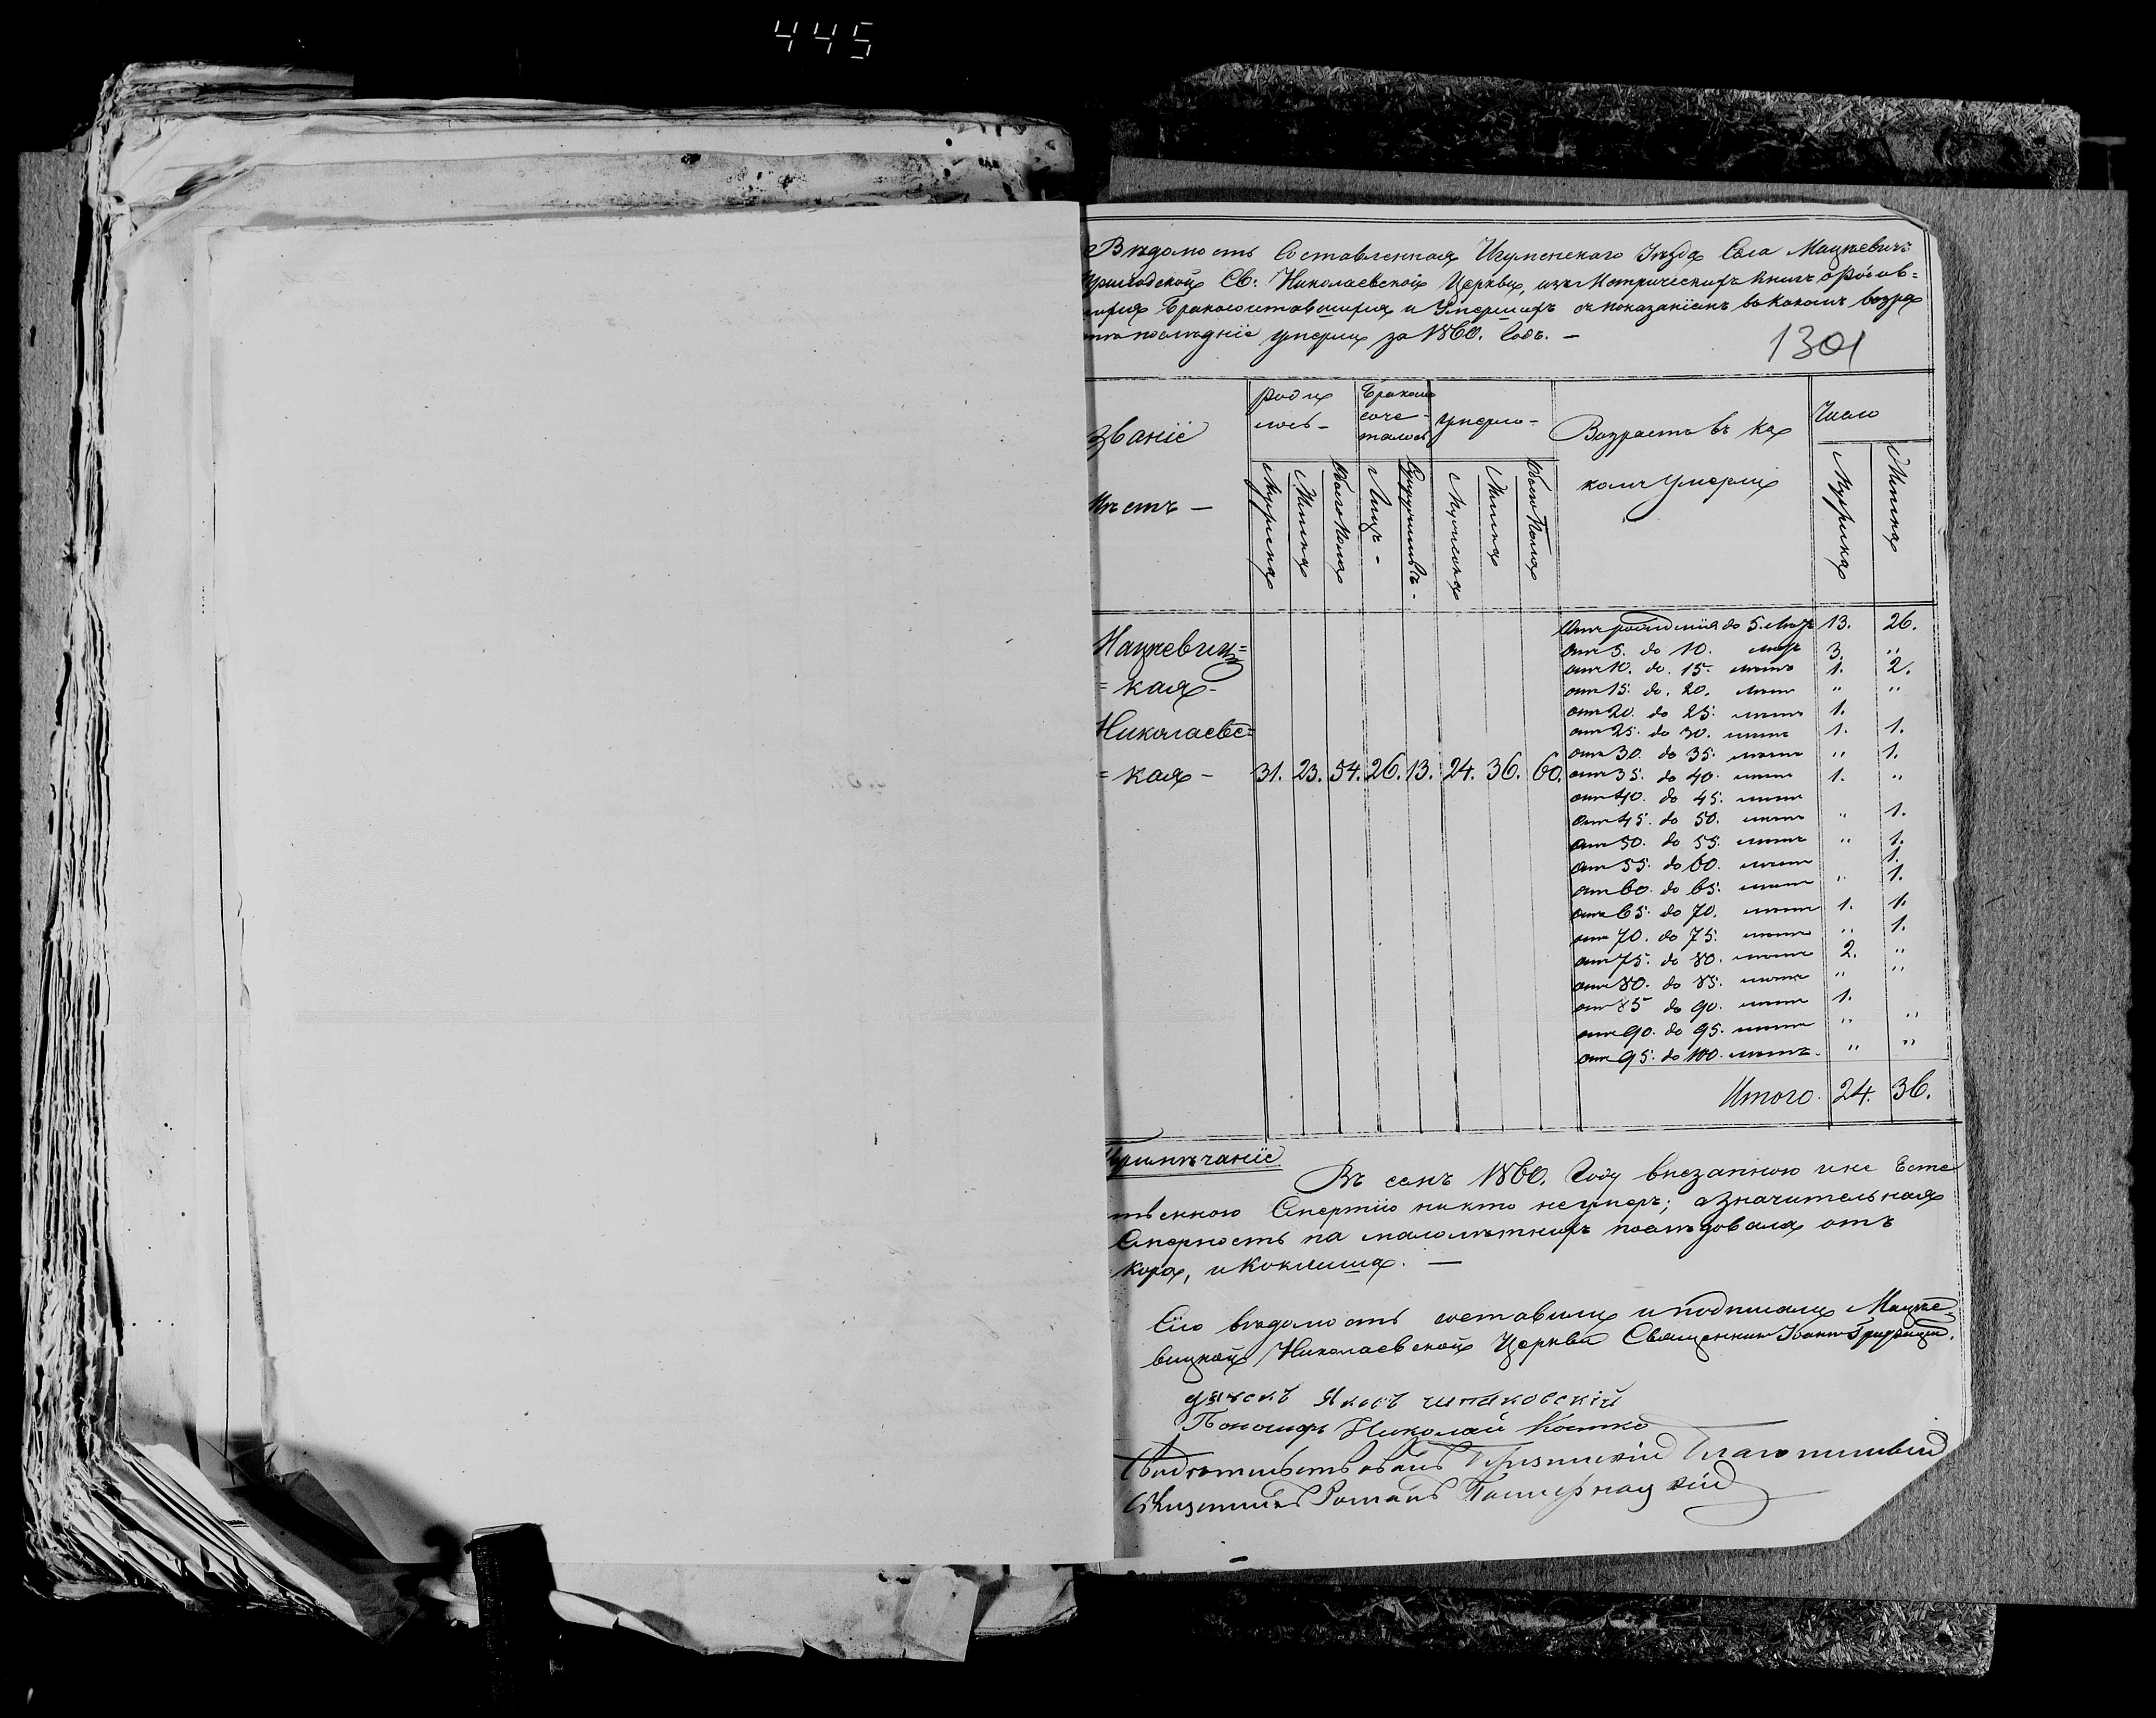 445
Вѣдомость Составленная Игуменскаго Уѣзда Села Мацкевичъ
Приходской Св: Николаевской Церкви, изъ Метрическихъ Книгъ о Родив=
шихся Бракосочетавшихся и Умершихъ съ показаніемъ въ какомъ возра
стѣ послѣдніе умерли за 1860. Годъ. —
1301
Званіе
Мѣстъ —
Роди
лось —
Бракомъ
соче-
талось
Умерло —
Возрастъ въ ка
комъ Умерли
Число
Мужеска
Женска
Обоего Пола
Лицъ -
Супружествъ -
Мужеска
Женска
Обоего Пола
Мужеска
Женска
Мацкевич=
= кая -
Николаевс=
= кая - 31. 23. 54. 26. 13. 24. 36. 60.
Отъ рожденія до 5. лѣтъ 13. 26.
отъ 5. до 10. лѣтъ 3. "
отъ 10. до. 15. лѣтъ 1. 2.
отъ 15. до. 20. лѣтъ " "
отъ 20. до 25. лѣтъ 1.
отъ 25. до 30. лѣтъ 1. 1.
отъ 30. до 35. лѣтъ " 1.
отъ 35. до 40. лѣтъ 1. "
отъ 40. до 45. лѣтъ
отъ 45. до 50. лѣтъ " 1.
отъ 50. до 55. лѣтъ " 1.
отъ 55. до 60. лѣтъ 1.
отъ 60. до 65. лѣтъ " 1.
отъ 65. до 70. лѣтъ 1. 1.
отъ 70. до 75. лѣтъ " 1.
отъ 75. до 80. лѣтъ 2. "
отъ 80. до 85. лѣтъ " "
отъ 85 до 90. лѣтъ 1.
отъ 90. до 95. лѣтъ " "
отъ 95. до 100. лѣтъ. " "
Итого. 24. 36.
Примѣчаніе
Въ семъ 1860. Году внезапною и не Есте
ственною Смертію никто не умеръ; а значительная
Смерность на малолѣтнихъ послѣдовала отъ
кора, и Коклюша. —
Сію вѣдомость составили и подписали Мацке-
вицкой Николаевской Церкви Священникъ Іоаннъ
дьячекъ Яковъ
Пономарь Николай
Свидѣтельствовалъ Благочинный
Священникъ Романъ